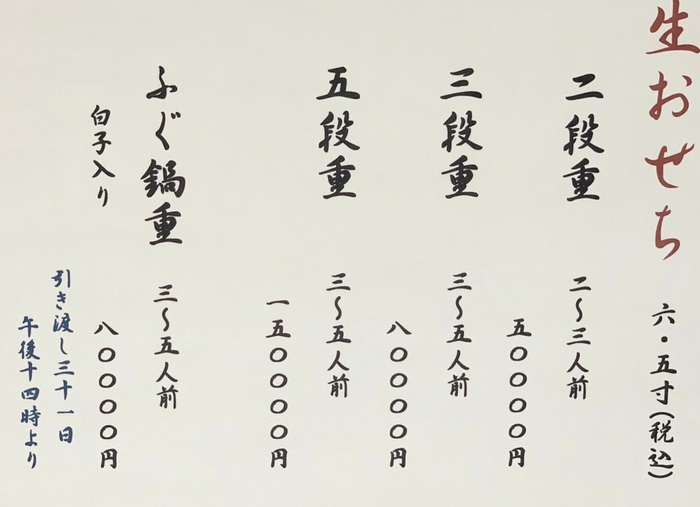 生おせち 六・五寸(税込)
二段重 二〜三人前
五〇〇〇〇円
三段重 三〜五人前
八〇〇〇〇円
五段重 三〜五人前
一五〇〇〇〇円
ふぐ鍋重 三〜五人前
白子入り 八〇〇〇〇円
引き渡し三十一日
午後十四時より